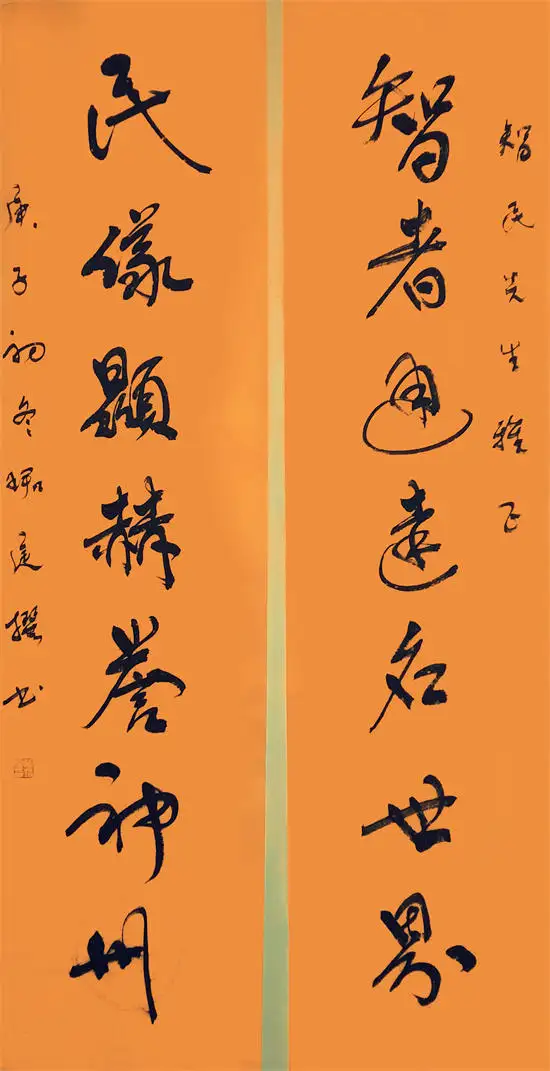 智民先生雅正
智者通遠名世界
民儀顯赫誉神州
庚子初冬 书